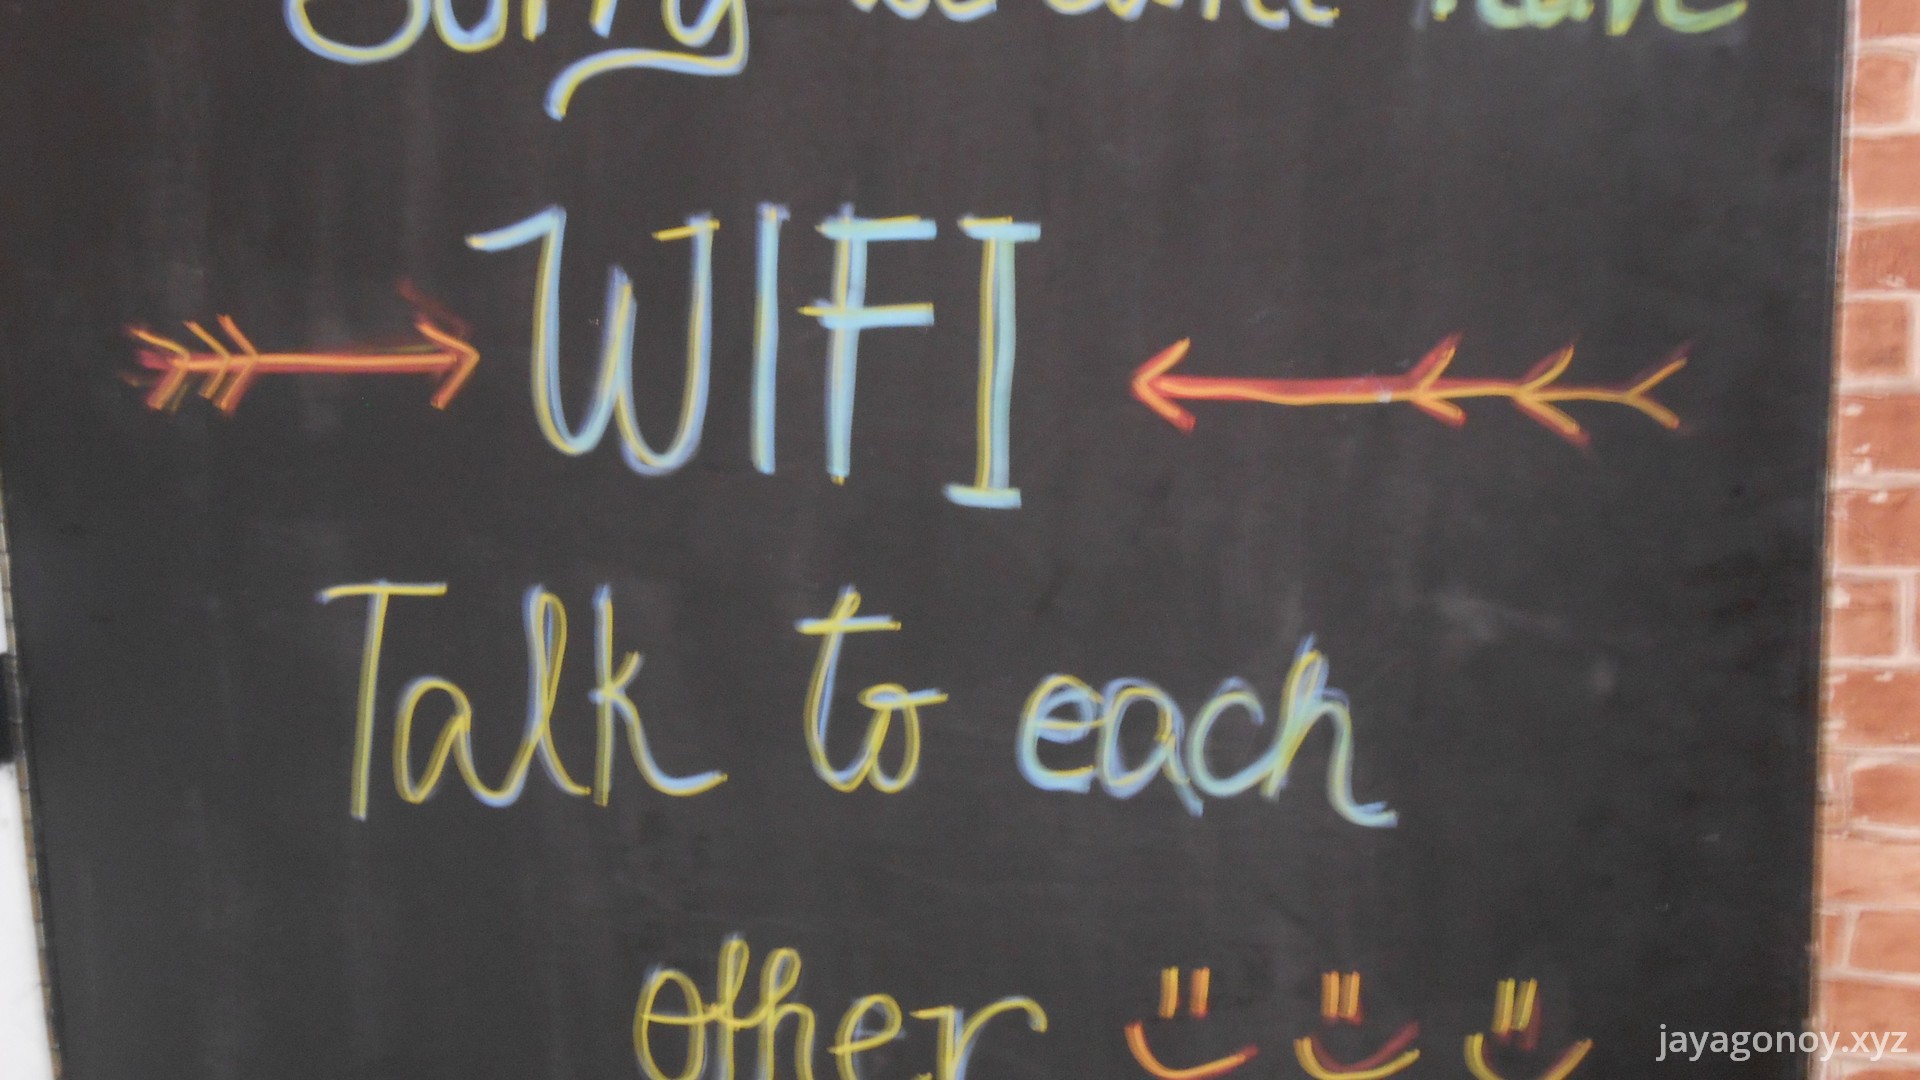 Sorry we don't have
WIFI
Talk to each
other
jayagonoy.xyz